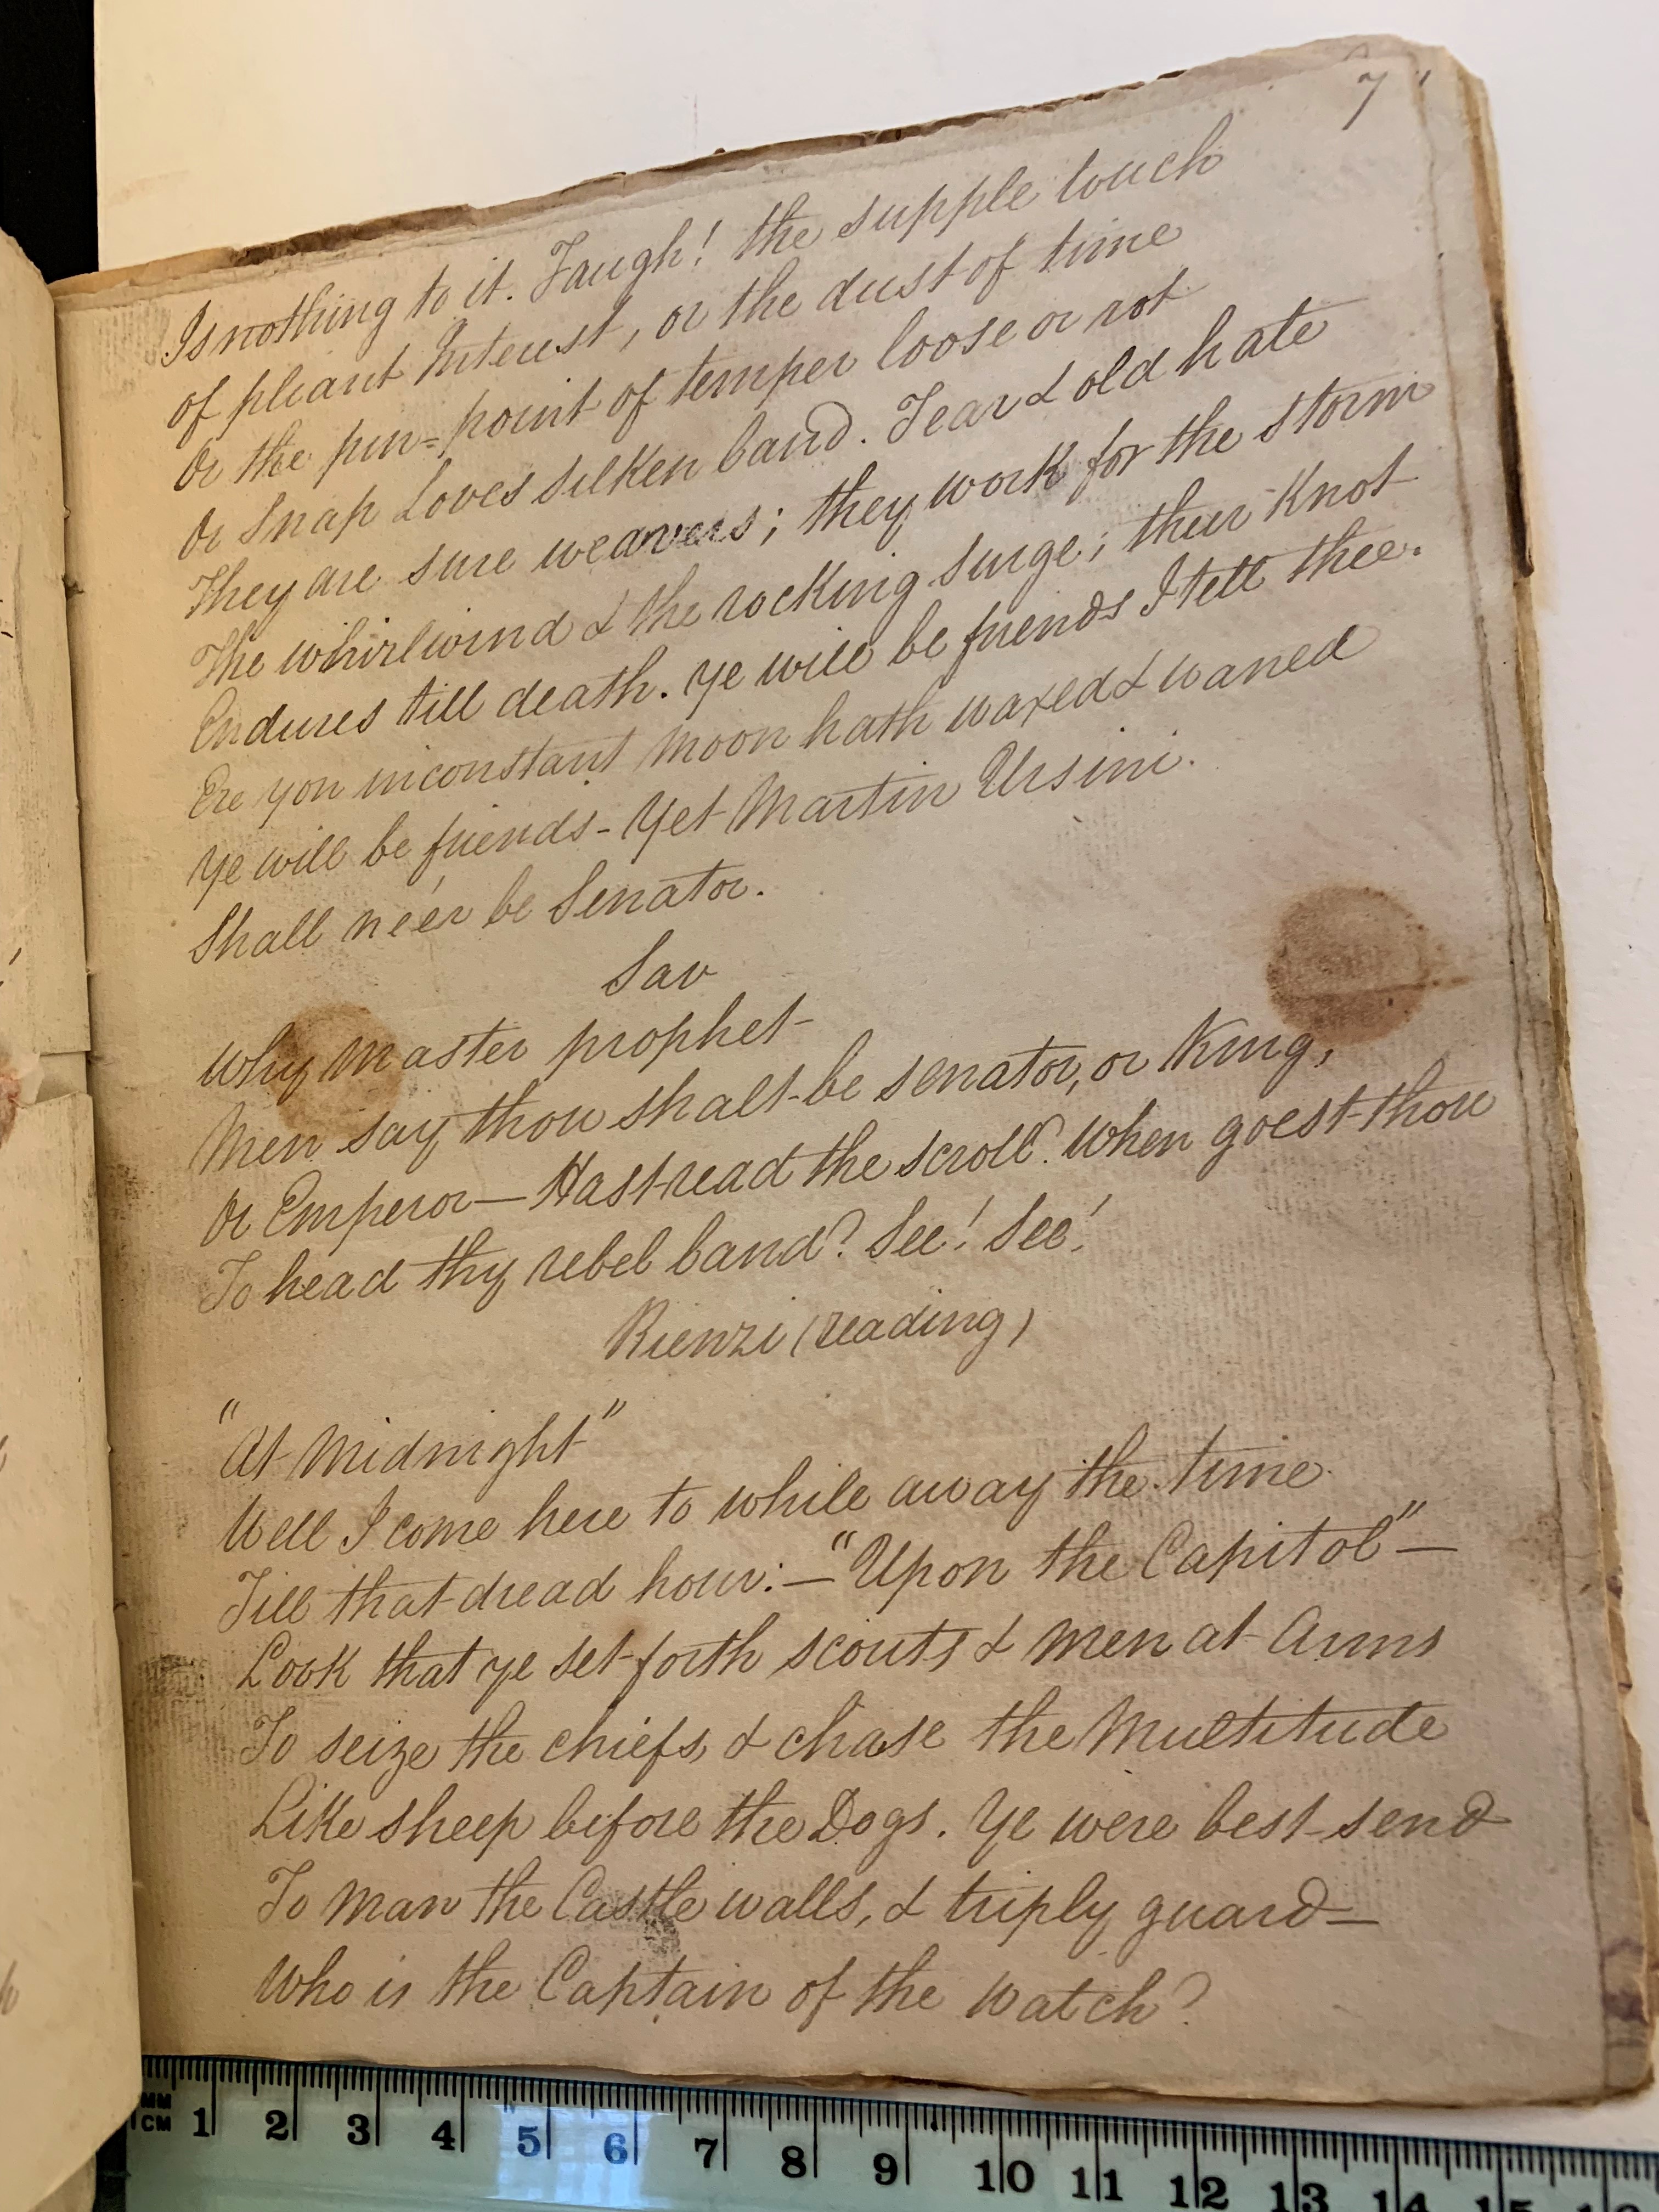 7
Is nothing to it. Faugh! the supple touch
of pliant Interest, or the dust of time
Or the pin=point of temper loose or rot
Or Snap Loves silken band. Fear & old hate
They are sure weavers; they work for the storm
The whirlwind & the rocking surge; their Knot
Endures till death. Ye will be friends I tell thee.
Ere yon inconstant Moon hath waxed & waned
Ye will be friends - Yet Martin Ursini.
Shall néér be Senator.
Sav
Why Master prophet
Men say thou shalt be senator, or King,
Or Emperor — Hast read the scroll? When goest thou
To head thy rebel band? See! See!
Rienzi (reading)
"At Midnight"
Well I come here to while away the time
Till that dread hour: — "Upon the Capitol" —
Look that ye set forth scouts & Men at Arms
To seize the chiefs, & chase the Multitude
Like sheep before the Dogs. Ye were best send
To Man the Castle walls, & triply guard —
Who is the Captain of the Watch?
MM
CM 1 2 3 4 5 6 7 8 9 10 11 12 13 14 15